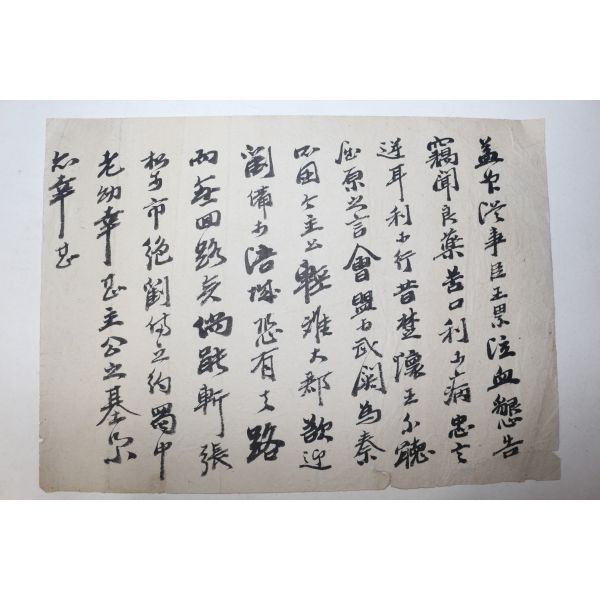 益州從事臣王累泣血懇告
竊聞良藥苦口利於病忠言
逆耳利於行昔楚懷王不聽
屈原之言會盟於武関為秦
所困今主公輕離大郡欲迎
劉備於涪城恐有去路
而無回路矣倘能斬張
松於市絕劉備之約蜀中
老幼幸甚主公之基業
亦幸甚